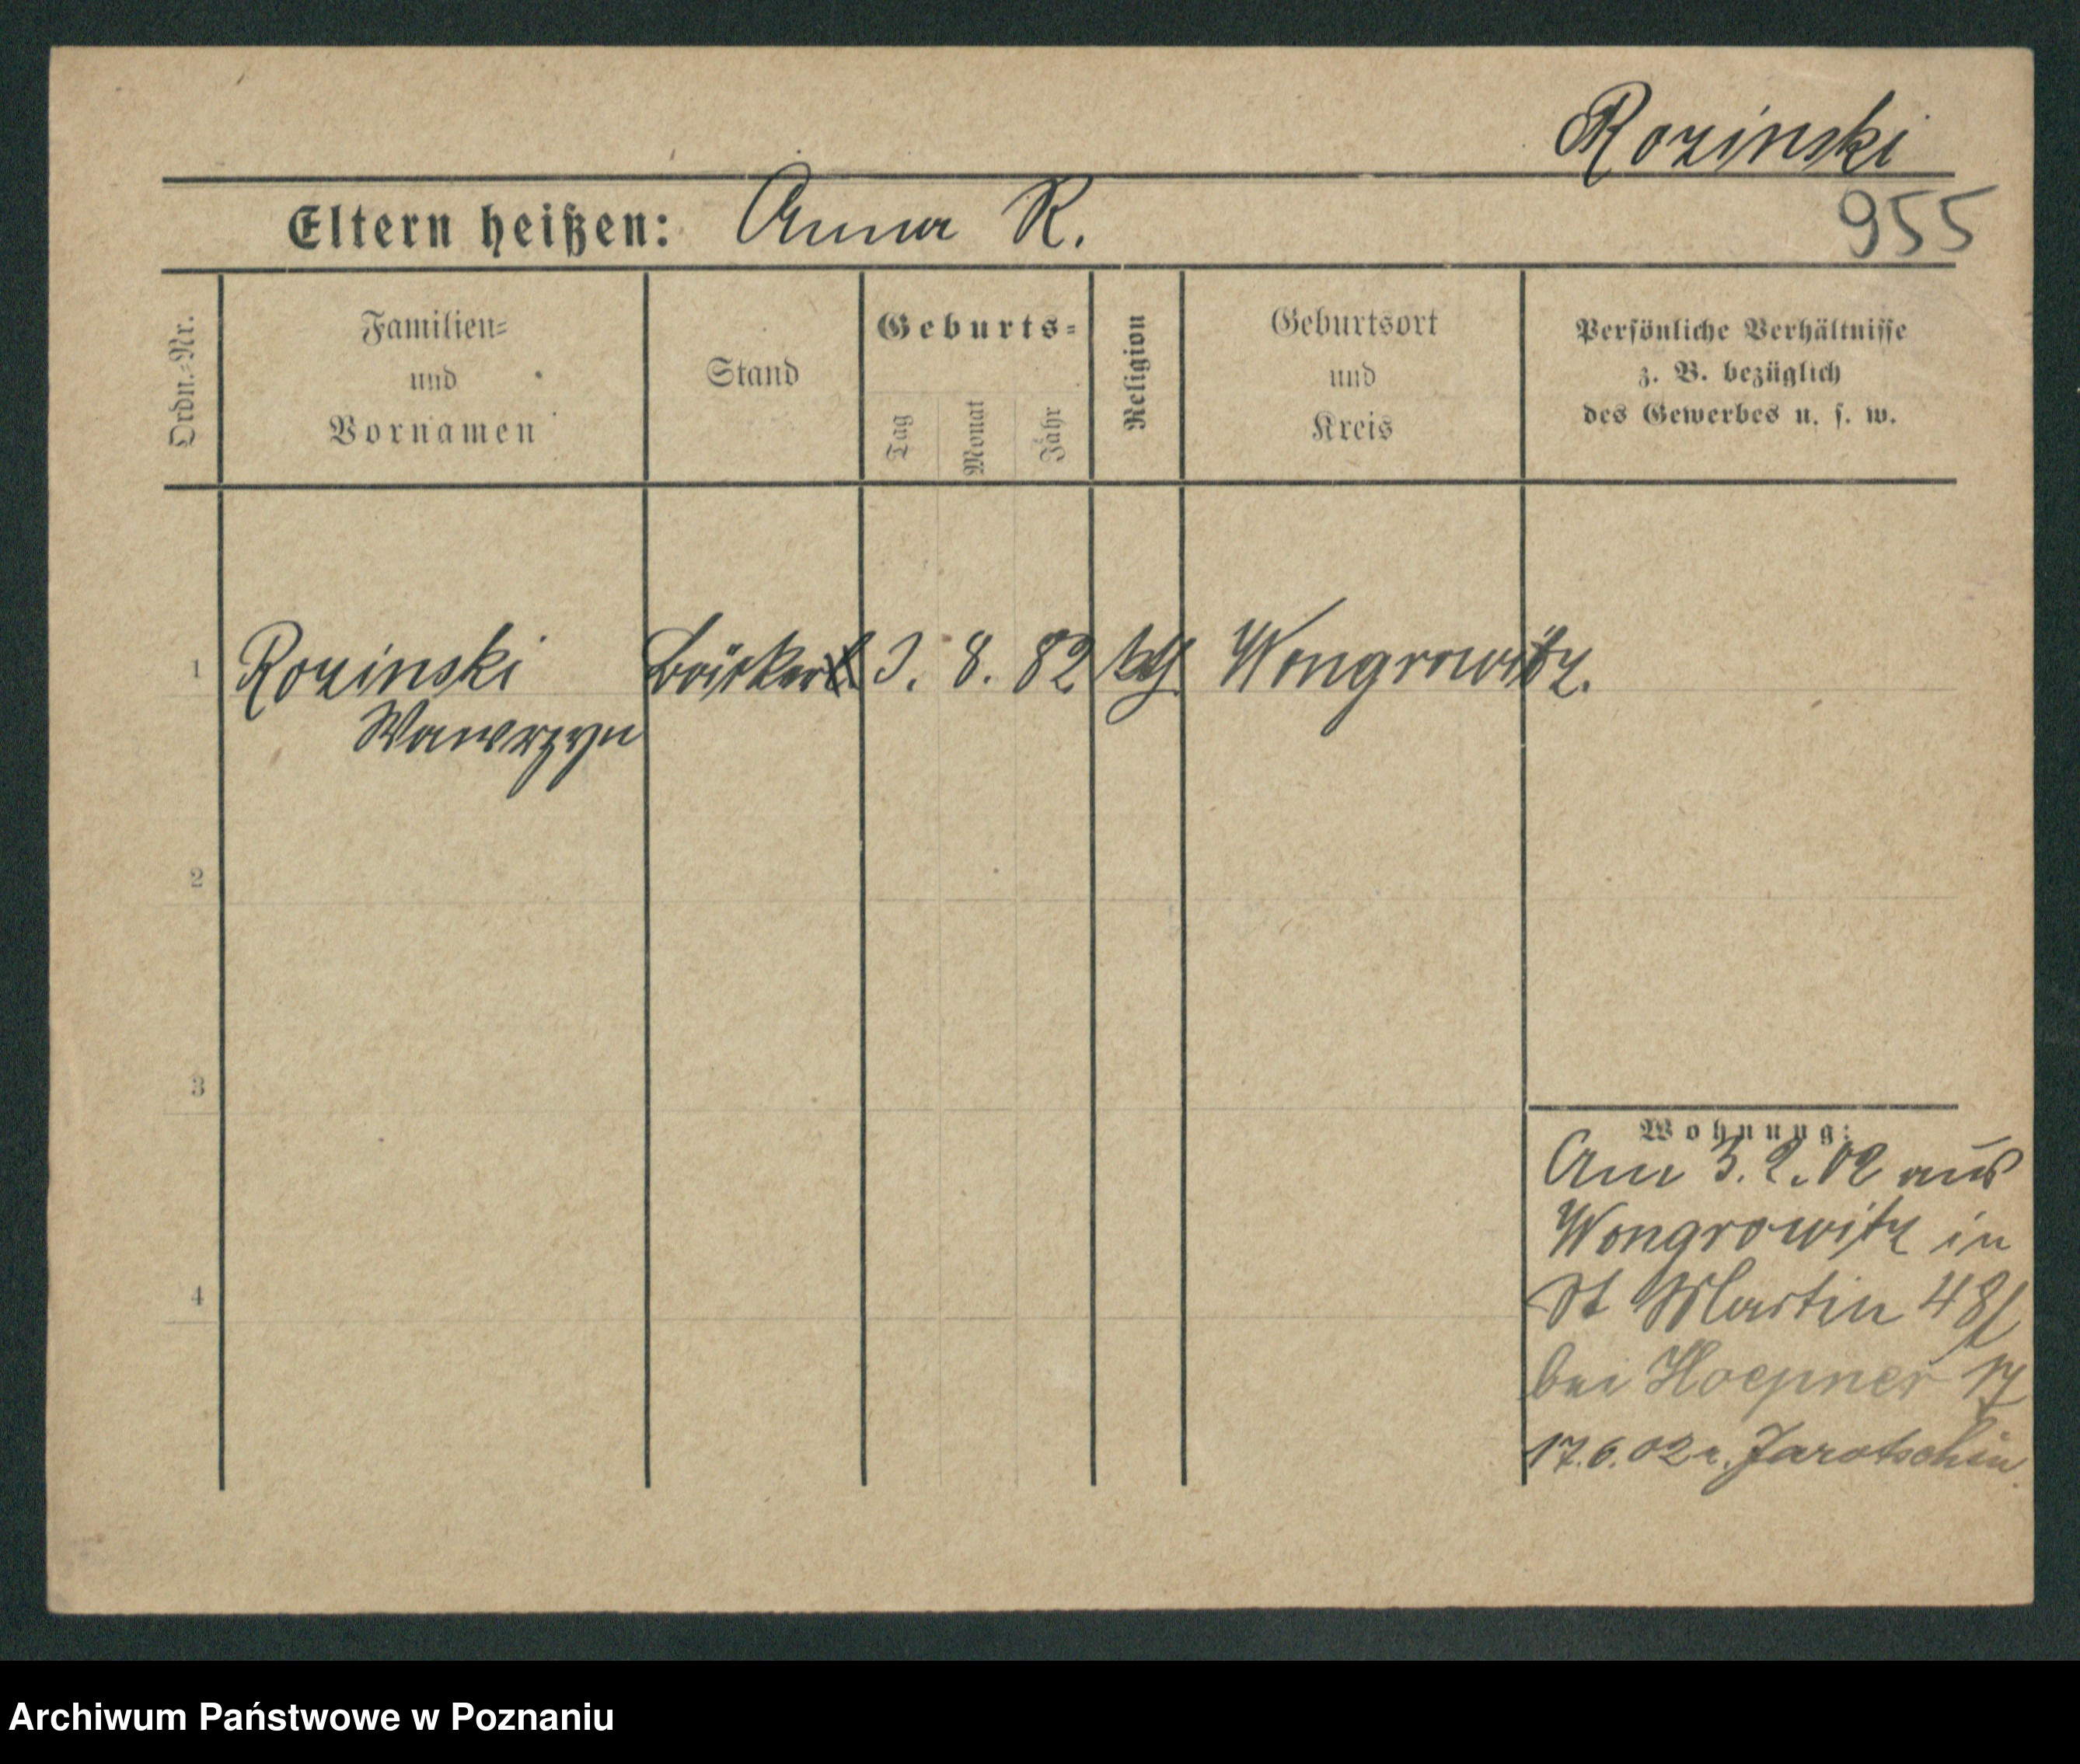 Rozinski
Eltern heißen: Anna R.
955
Ordn.-Nr.
Familien-
und
Vornamen
Stand
Geburts-
Tag
Monat
Jahr
Religion
Geburtsort
und
Kreis
Persönliche Verhältnisse
z. B. bezüglich
des Gewerbes u. s. w.
1 Rozinski Bäcker 3. 8. 82 Wongrowitz.
Wawrzyn
2
3
4
Wohnung:
Am 3. 2. 02 aus
Wongrowitz in
St Martin 48/
bei Hoepner
17. 6. 02 n. Jarotschin.
Archiwum Państwowe w Poznaniu